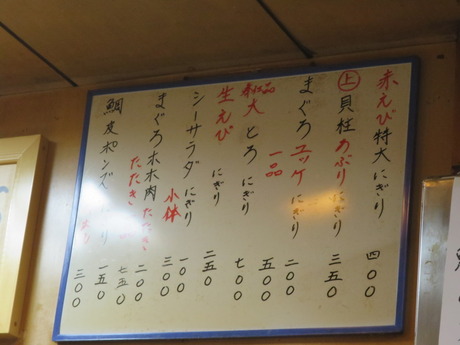 赤えび特大にぎり 四〇〇
上 貝柱あぶりにぎり 三五〇
まぐろユッケにぎり 二〇〇
一品 五〇〇
とろにぎり 七〇〇
生えびにぎり 二五〇
シーサラダにぎり 一〇〇
小鉢 三〇〇
まぐろホホ肉たたき 二〇〇
たたき 七五〇
鯛皮ポンズ 一五〇
三〇〇